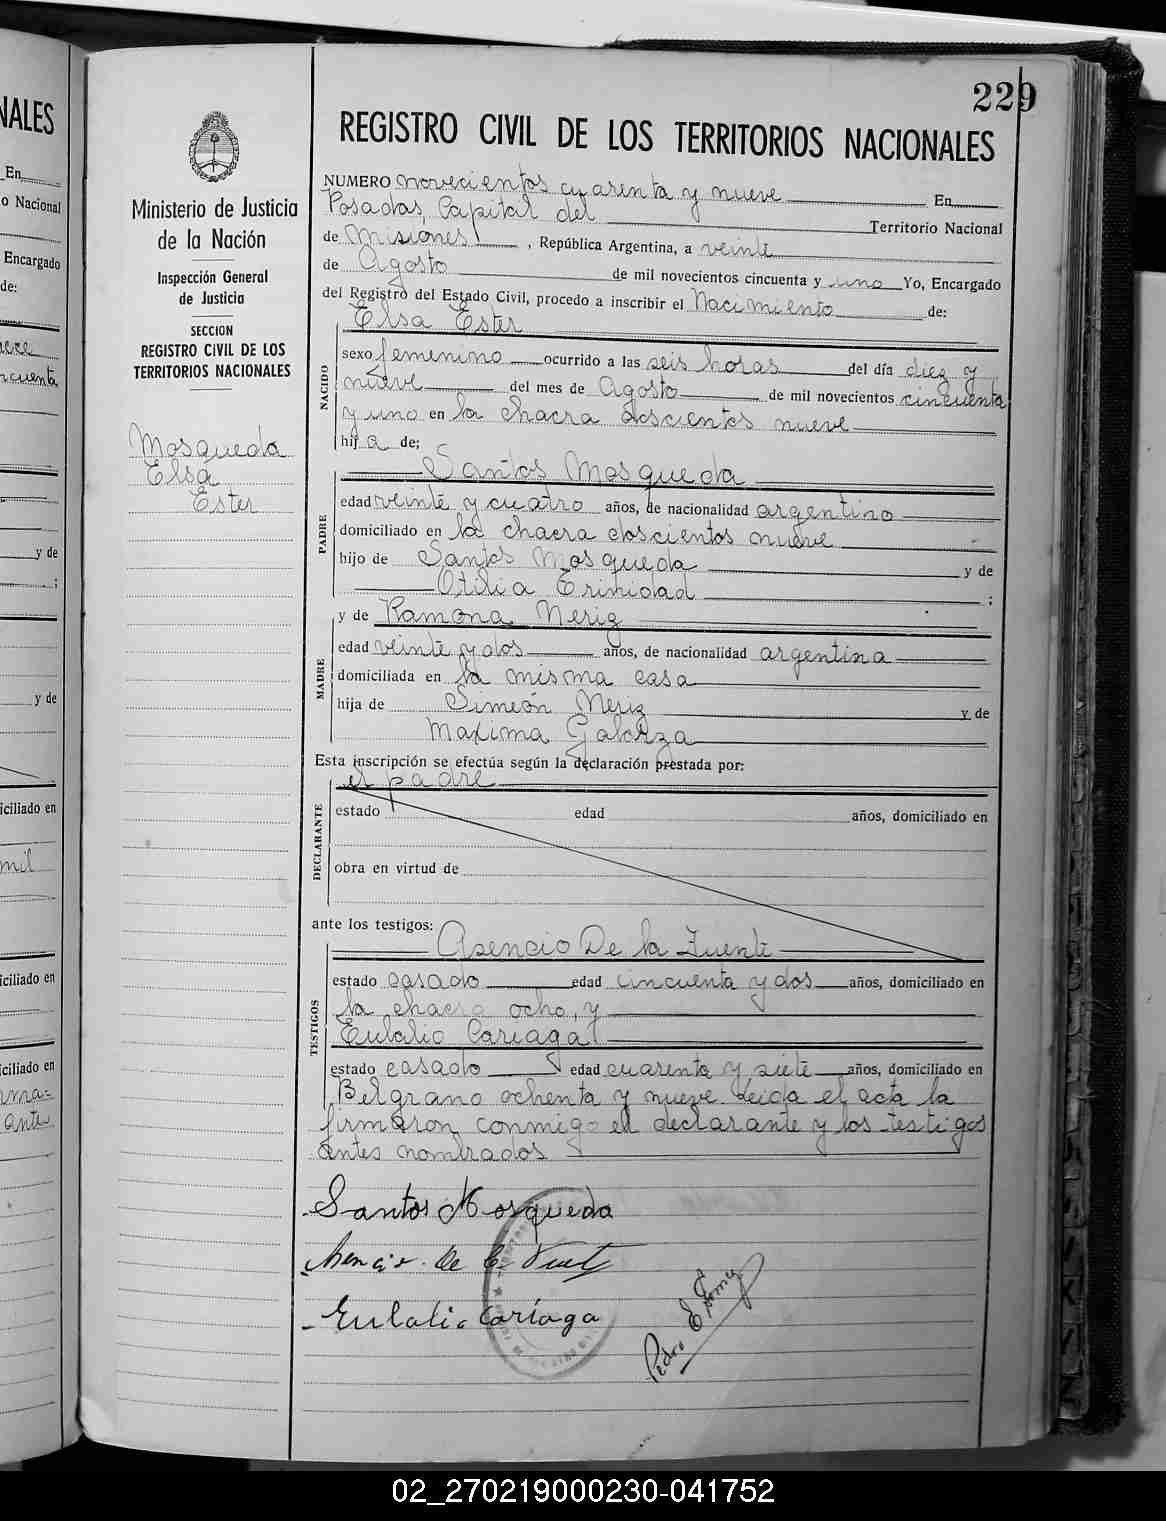 229
REGISTRO CIVIL DE LOS TERRITORIOS NACIONALES
Ministerio de Justicia
de la Nación
Inspección General
de Justicia
SECCION
REGISTRO CIVIL DE LOS
TERRITORIOS NACIONALES
Mosqueda
Elsa
Ester
NUMERO novecientos cuarenta y nueve En
Posadas, Capital del Territorio Nacional
de Misiones, República Argentina, a veinte
de Agosto de mil novecientos cincuenta y uno Yo, Encargado
del Registro del Estado Civil, procedo a inscribir el Nacimiento de:
Elsa Ester
NACIDO
sexo femenino ocurrido a las seis horas del día diez y
nueve del mes de Agosto de mil novecientos cincuenta
y uno en la chacra doscientos nueve
hija de:
Santos Mosqueda
PADRE
edad veinte y cuatro años, de nacionalidad argentino
domiciliado en la chacra doscientos nueve
hijo de Santos Mosqueda y de
Otilia Trinidad ;
y de Ramona Neriz
MADRE
edad veinte y dos años, de nacionalidad argentina
domiciliada en la misma casa
hija de Simeón Neriz y de
Maxima Galarza
Esta inscripción se efectúa según la declaración prestada por:
el padre
DECLARANTE
estado edad años, domiciliado en
obra en virtud de
ante los testigos:
Asencio De la Fuente
TESTIGOS
estado casado edad cincuenta y dos años, domiciliado en
la chacra ocho, y
Eulalio Cariaga
estado casado edad cuarenta y siete años, domiciliado en
Belgrano ochenta y nueve. Leida el acta la
firmaron conmigo el declarante y los testigos
antes nombrados
Santos Mosqueda
Asencio De la Fuente
Eulalio Cariaga
Pedro E.
NALES
En
o Nacional
Encargado
de:
cuenta
y de
;
y de
iciliado en
mil
iciliado en
iciliado en
ante
02_270219000230-041752